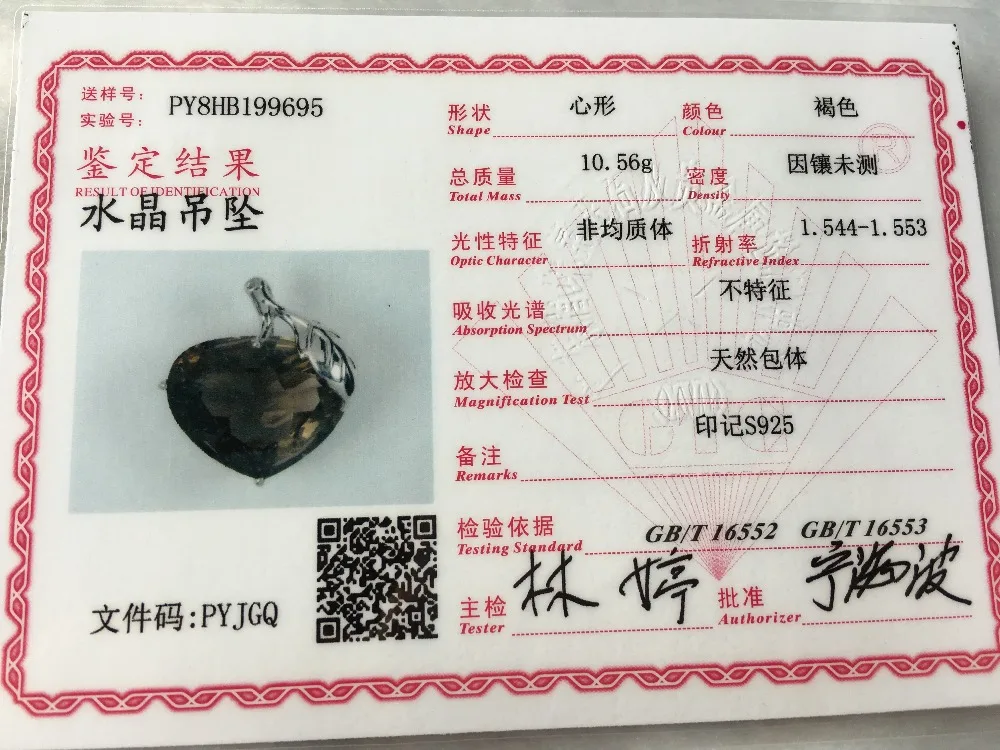 送样号:
实验号:
PY8HB199695
鉴定结果
RESULT OF IDENTIFICATION
水晶吊坠
文件码:PYJGQ
形状 心形 颜色 褐色
Shape Colour
总质量 10.56g 密度 因镶未测
Total Mass Density
光性特征 非均质体 折射率 1.544-1.553
Optic Character Refractive Index
吸收光谱 不特征
Absorption Spectrum
放大检查 天然包体
Magnification Test
备注 印记S925
Remarks
检验依据 GB/T 16552 GB/T 16553
Testing Standard
主检 林婷 批准 宁海波
Tester Authorizer
R